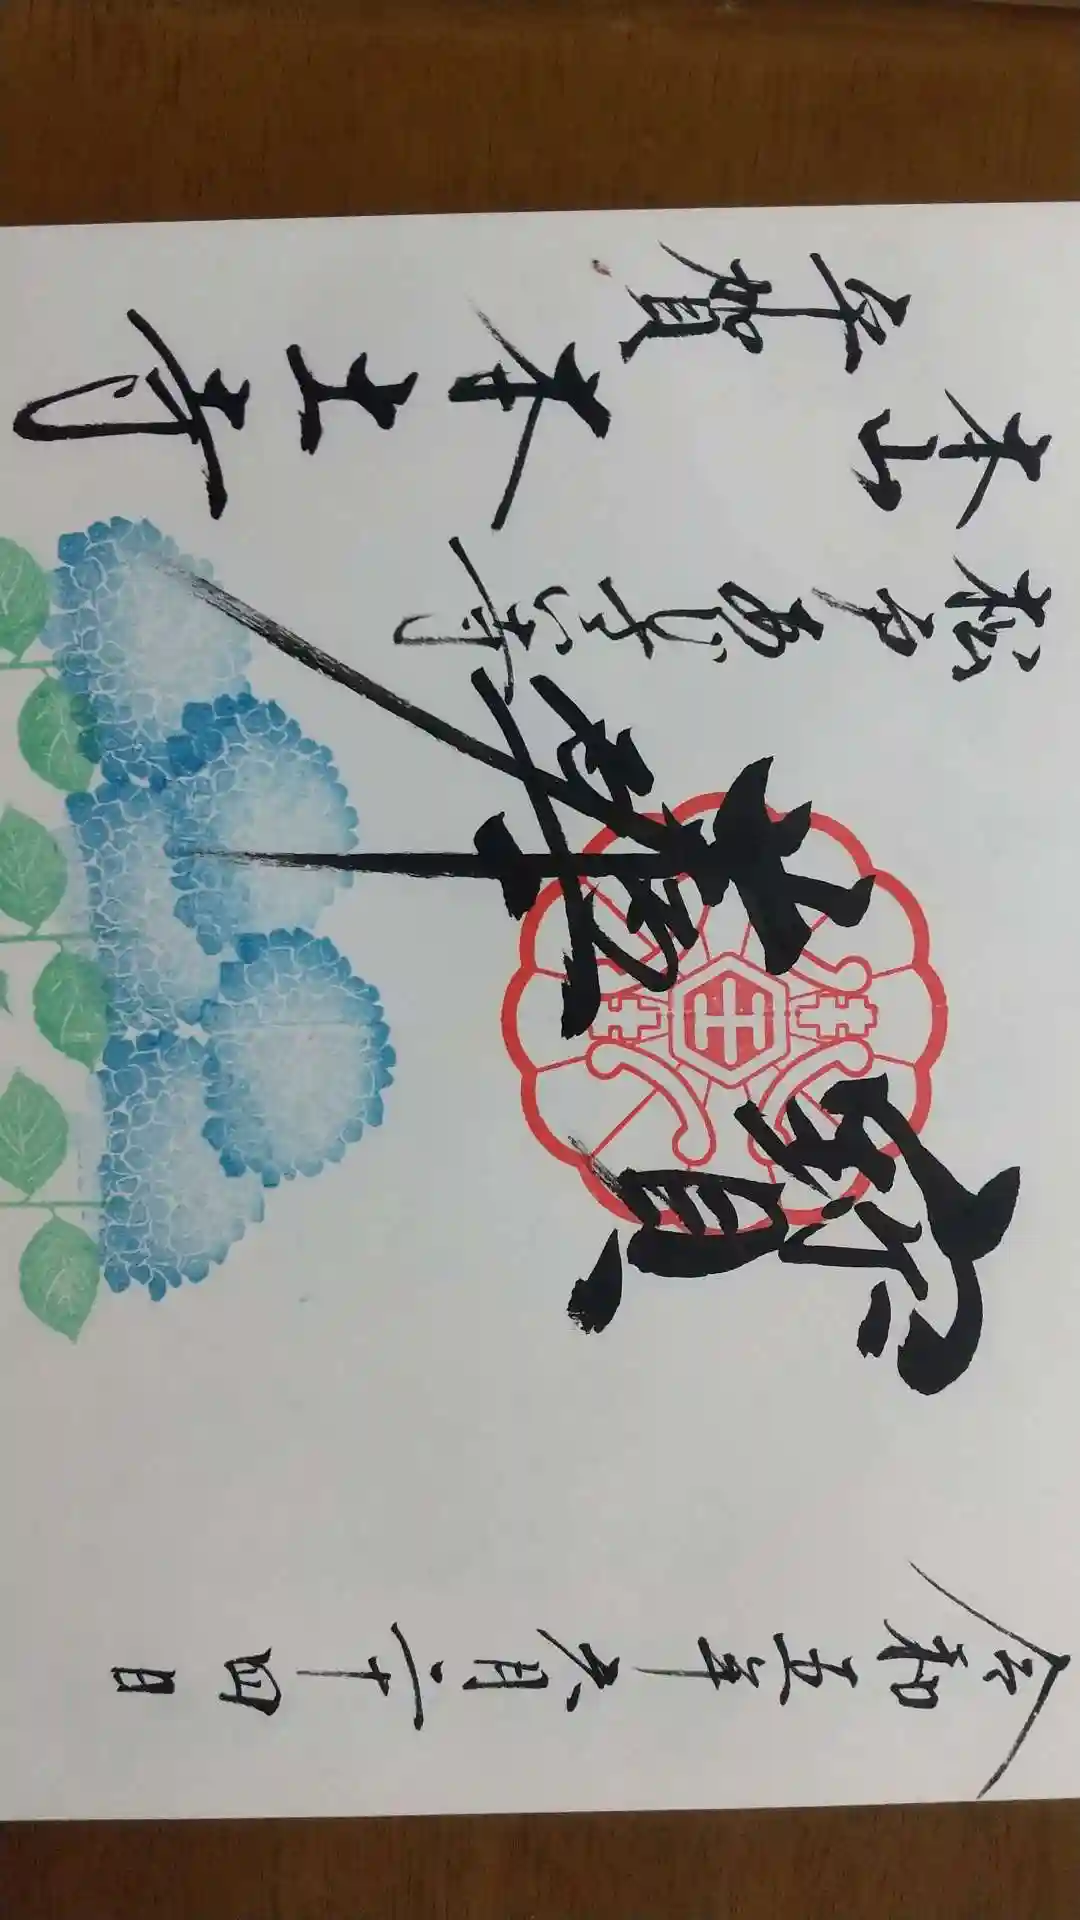 令和五年六月二十四日
寶
松戸あじさい寺
本山
平賀
本土寺